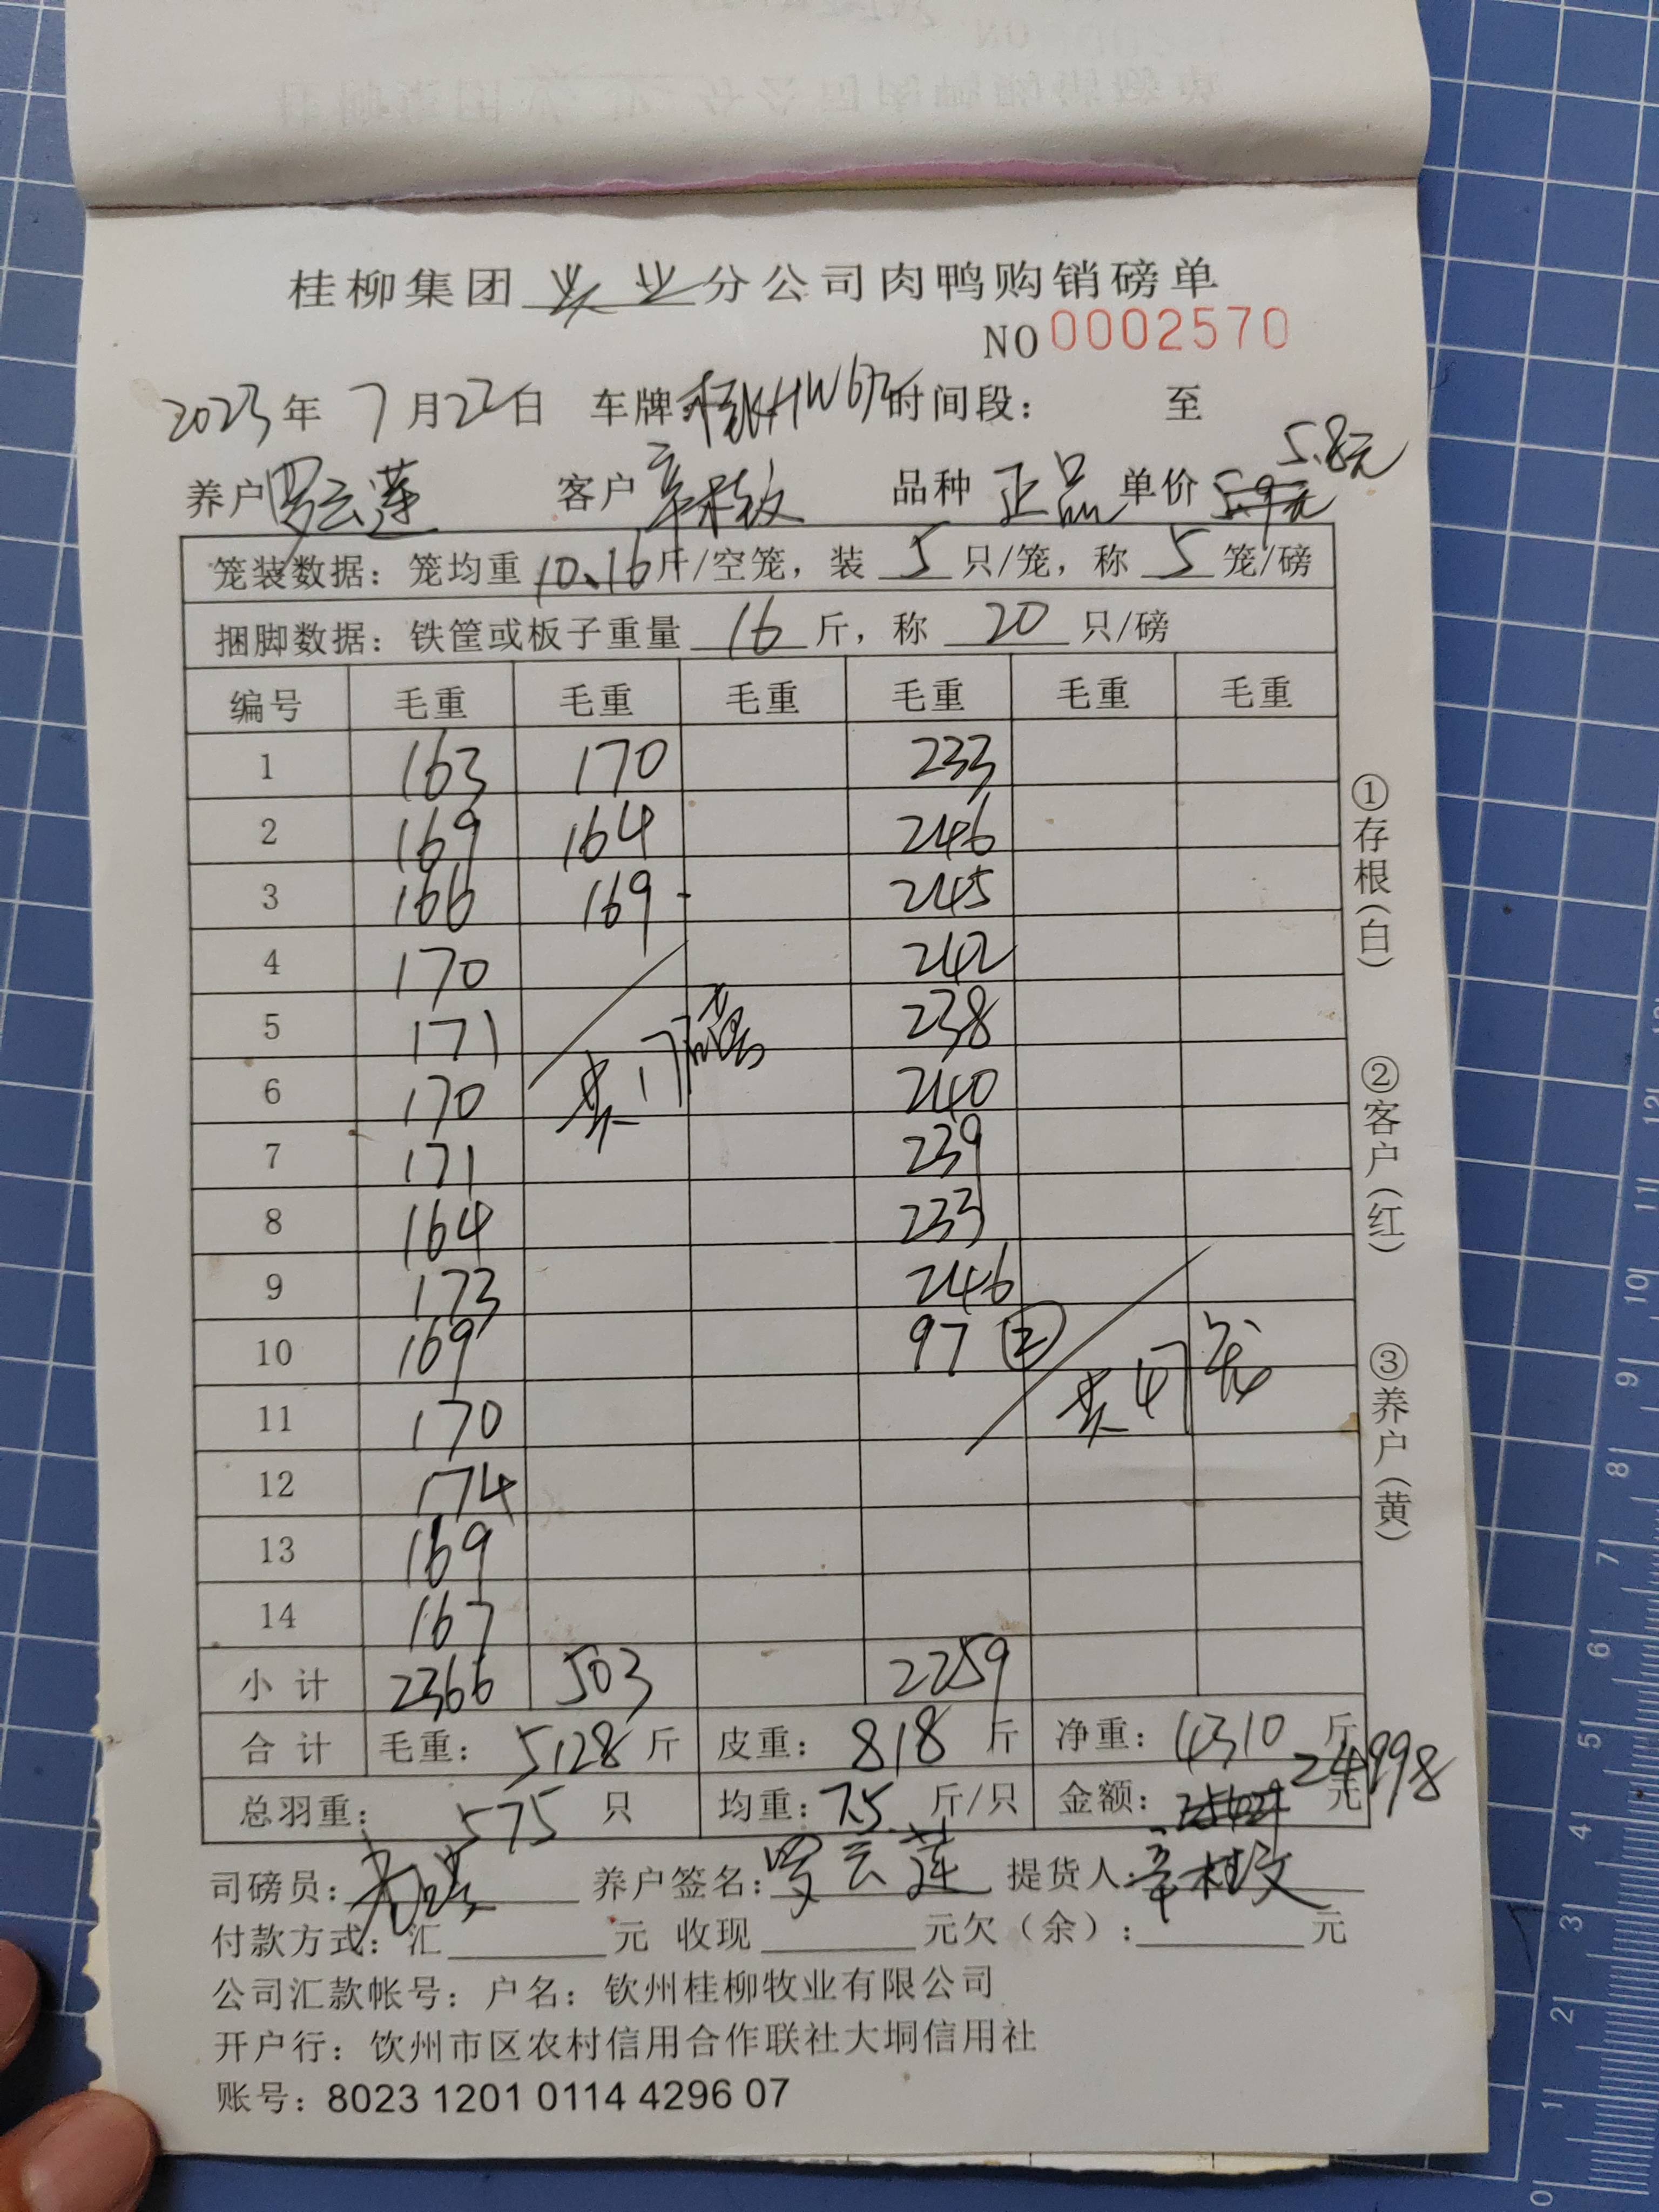 桂柳集团 分公司肉鸭购销磅单
NO 0002570
2023年 7月22日 车牌: 时间段: 至
5.8元
养户 罗云莲 客户 辛桂玫 品种 正品 单价 5.9元
笼装数据: 笼均重 10.16 斤/空笼, 装 5 只/笼, 称 5 笼/磅
捆脚数据: 铁筐或板子重量 16 斤, 称 20 只/磅
编号 毛重 毛重 毛重 毛重 毛重 毛重
1 163 170 233
2 169 164 246
3 166 169 245
4 170 242
5 171 238
6 170 240
7 171 239
8 164 233
9 173 246
10 169 97 ②
11 170
12 174
13 169
14 167
共17
共47笼
小计 2366 503 2259
合计 毛重: 5128 斤 皮重: 818 斤 净重: 4310 斤
总羽重: 575 只 均重: 7.5 斤/只 金额: 24998 元
司磅员: 养户签名: 罗云莲 提货人:
付款方式: 汇 元 收现 元欠(余): 元
公司汇款帐号: 户名: 钦州桂柳牧业有限公司
开户行: 饮州市区农村信用合作联社大垌信用社
账号: 8023 1201 0114 4296 07
①存根(白)
②客户(红)
③养户(黄)